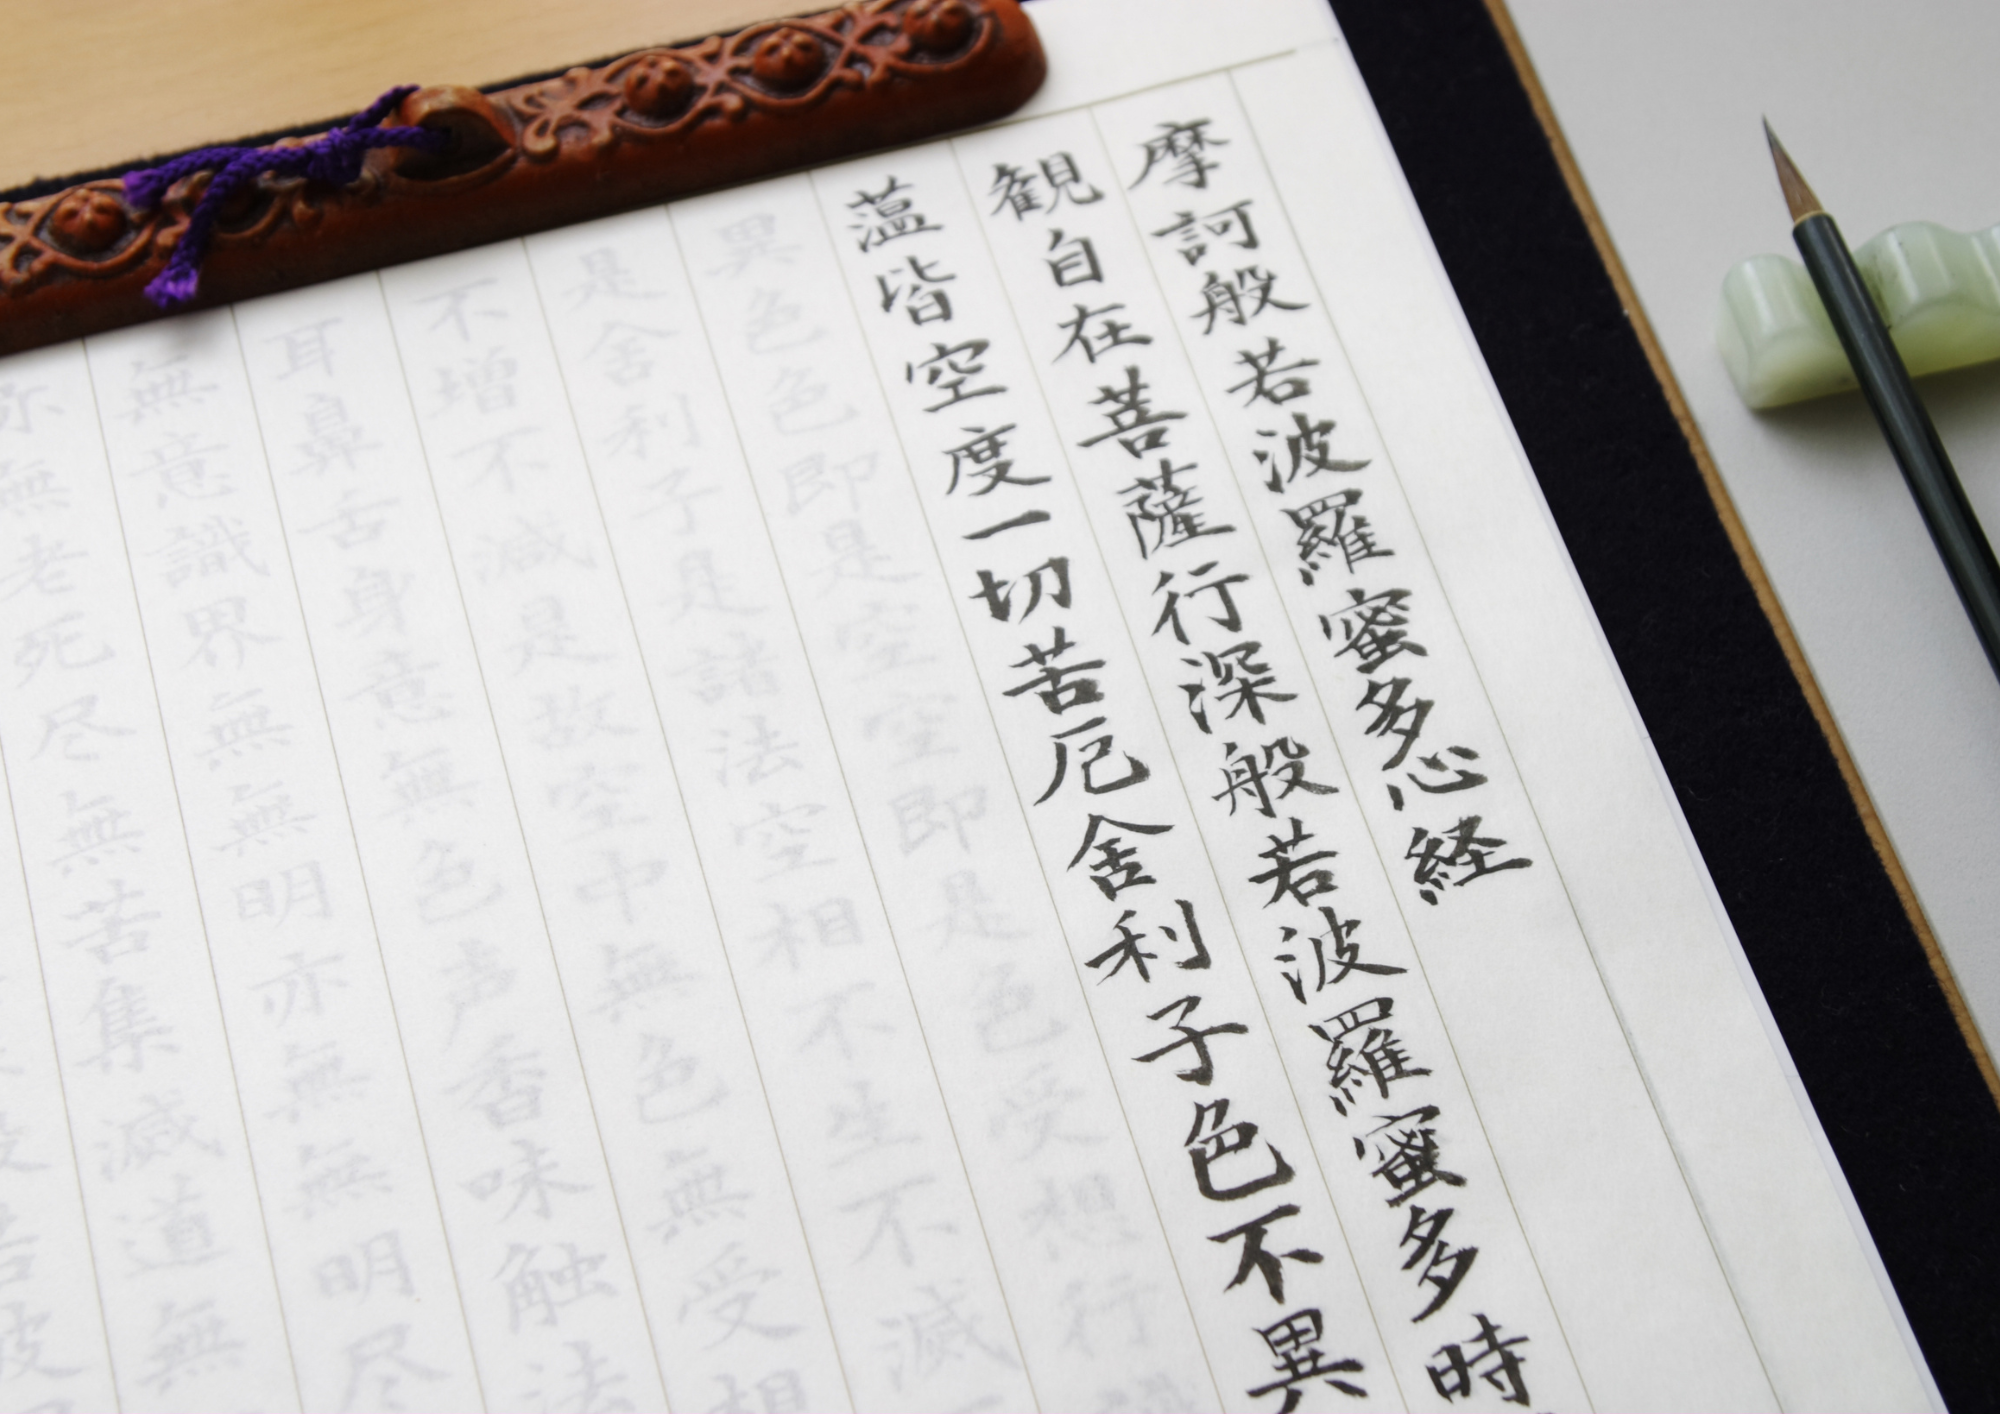 摩訶般若波羅蜜多心経
観自在菩薩行深般若波羅蜜多時
薀皆空度一切苦厄舎利子色不異
異色色即是空空即是色受想行識
是舎利子是諸法空相不生不滅
不増不減是故空中無色無受想
耳鼻舌身意無色声香味触法
無意識界無無明亦無無明尽
無老死尽無苦集滅道無